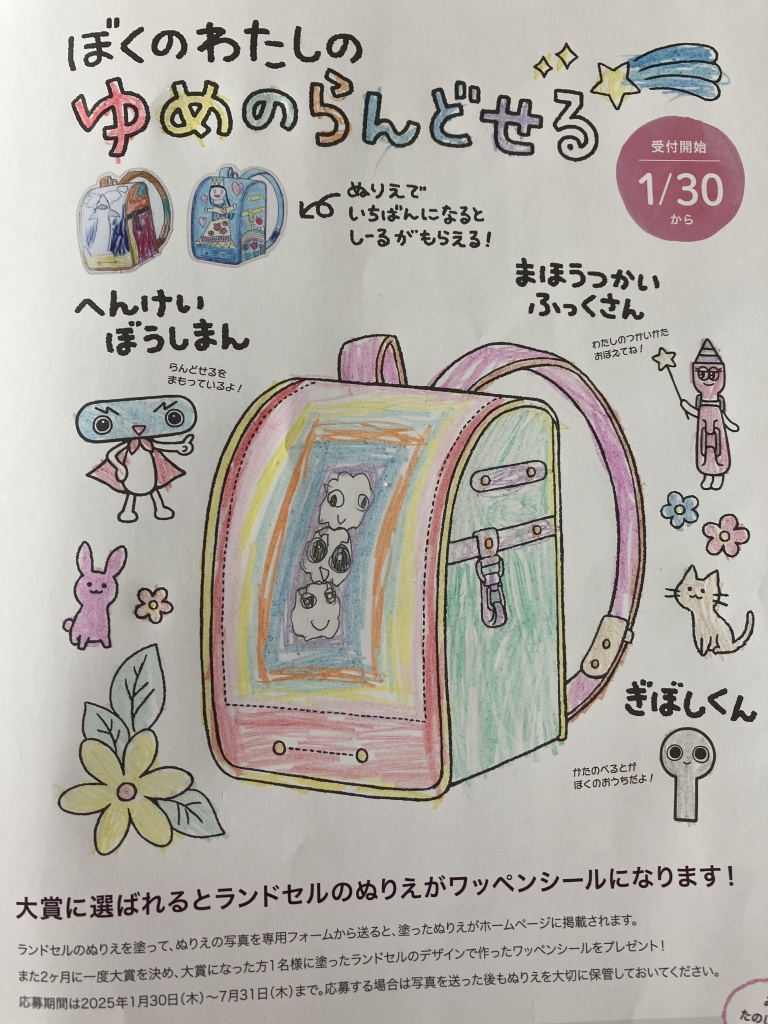 ぼくのわたしの
ゆめのらんどせる
受付開始
1/30
から
ぬりえで
いちばんになると
しーるがもらえる！
まほうつかい
ふっくさん
わたしのつかいかた
おぼえてね！
へんけい
ぼうしまん
らんどせるを
まもっているよ！
ぎぼしくん
かたのべるとが
ぼくのおうちだよ！
大賞に選ばれるとランドセルのぬりえがワッペンシールになります！
ランドセルのぬりえを塗って、ぬりえの写真を専用フォームから送ると、塗ったぬりえがホームページに掲載されます。
また2ヶ月に一度大賞を決め、大賞になった方1名様に塗ったランドセルのデザインで作ったワッペンシールをプレゼント！
応募期間は2025年1月30日(木)～7月31日(木)まで。応募する場合は写真を送った後もぬりえを大切に保管しておいてください。